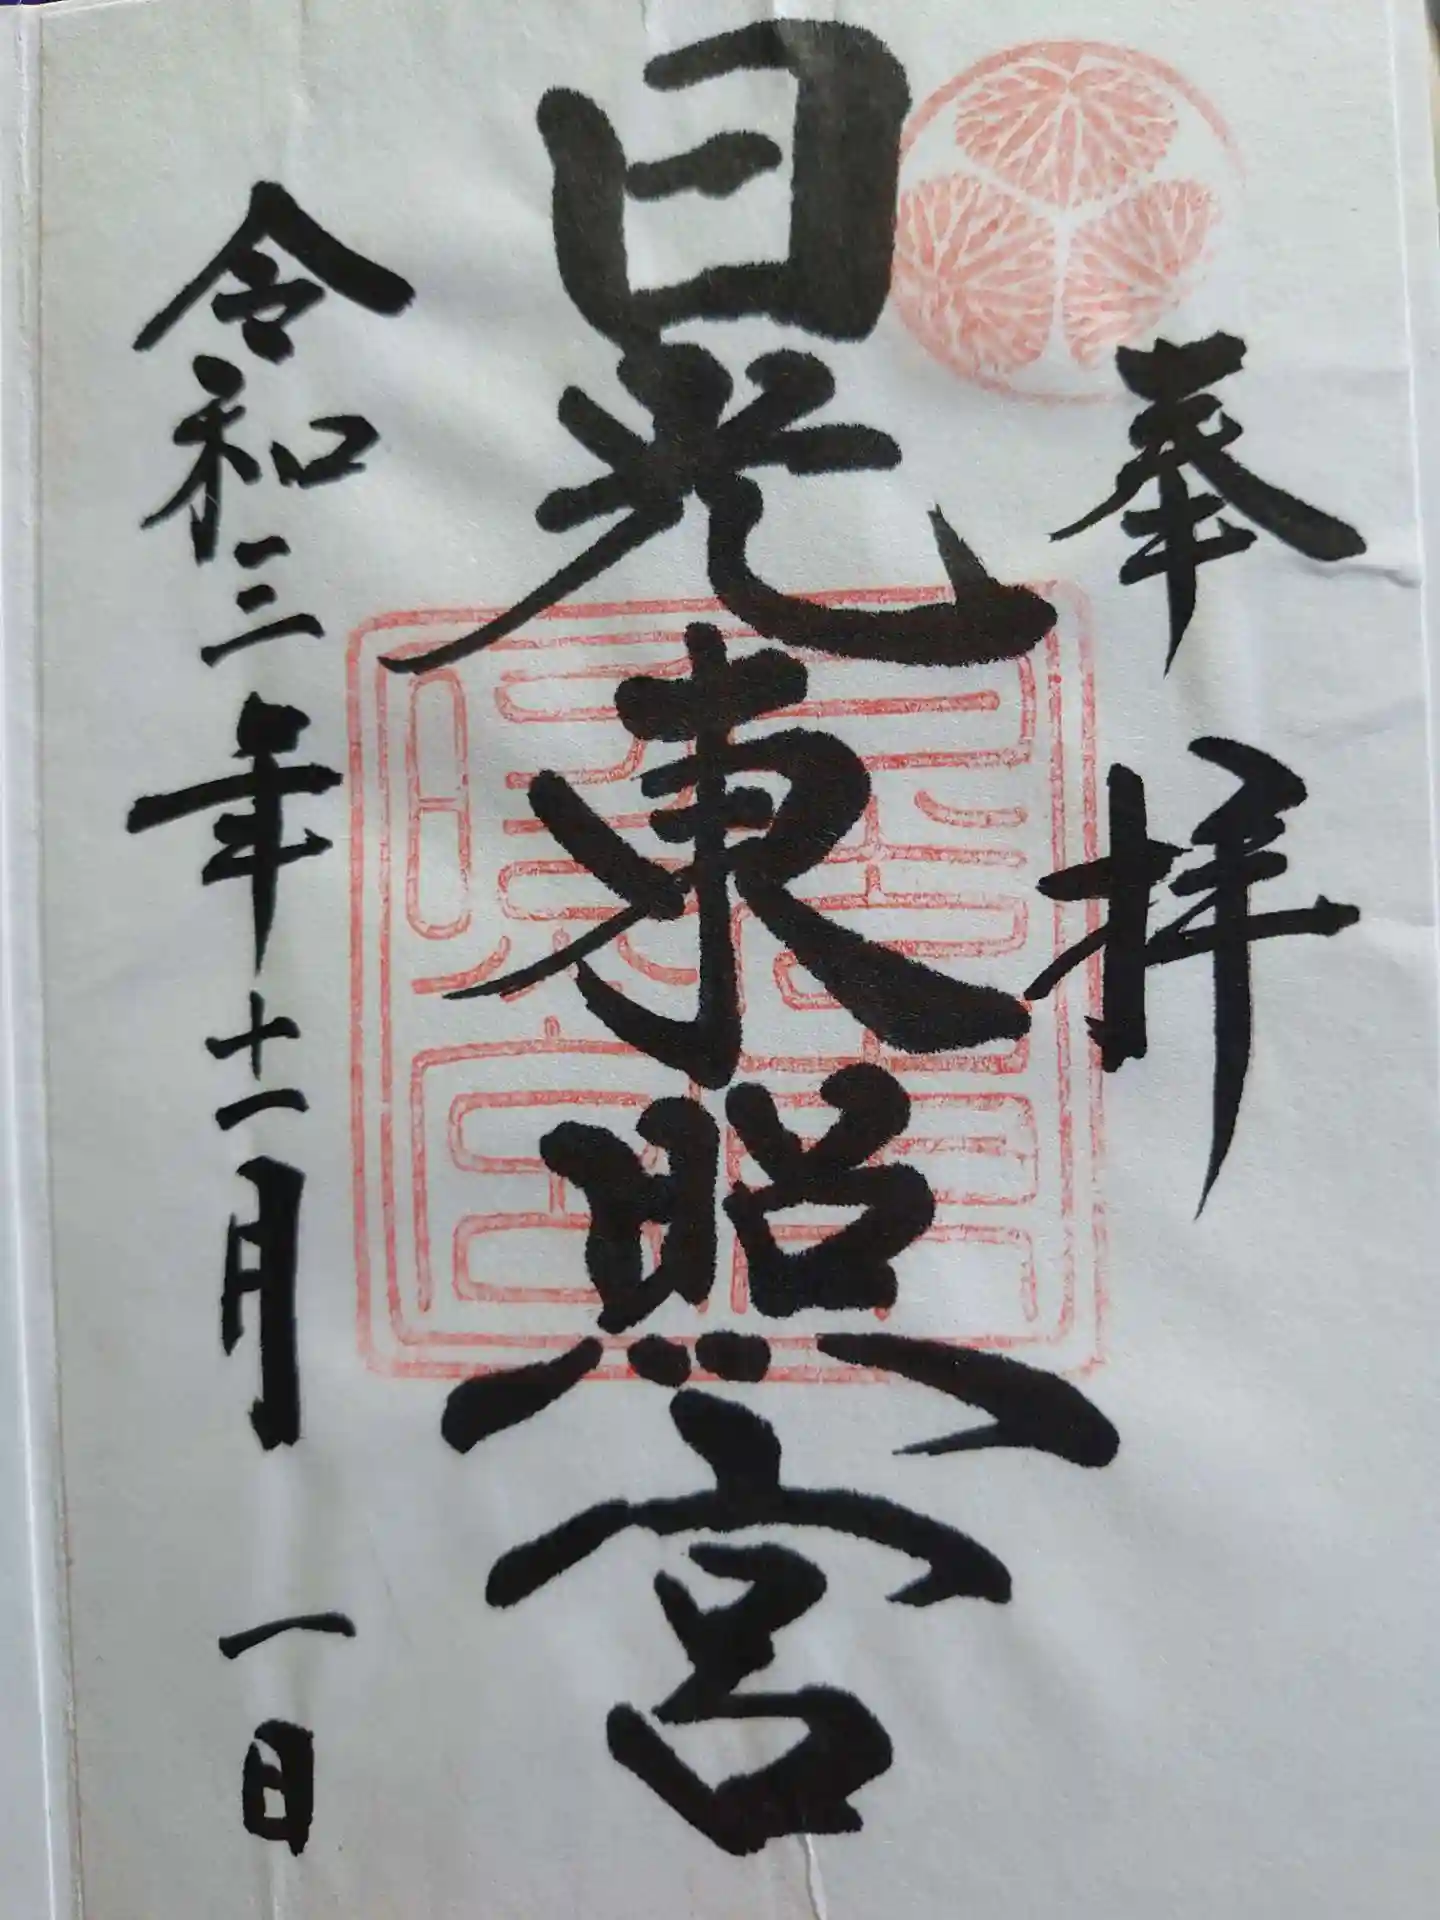 奉拝
日光東照宮
令和三年十一月一日